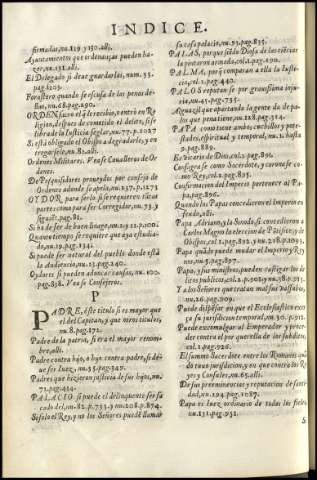 INDICE.
firmadas, nu. 119. y 150. alij.
Ayuntamientos que ordenanças pueden hazer, nu. 151. alij.
El Delegado si deue guardarlas, num. 35. pag. 6203.
Forastero quando se escusa de las penas dellas, nu. 68. pag. 490.
ORDEN sacro el q̃ le recebio, o entrò en Religion,
despues de cometido el delito, si se
libra de la Iusticia seglar, nu. 77. p. 1027
Si està obligado el Obispo a degradarlo, y entregarselo, nu. 81. alli.
Ordenes Militares. Vease Caualleros de Ordenes.
De Pesquisidores proueydos por consejo de
Ordenes adonde se apela, nu. 237. p. 1273
OYDOR, para serlo si se requieren tãtas
partes como para ser Corregidor, nu. 73. y
siguiẽt. pag. 81.
Si ha de ser de buen linage, nu. 29. 12. p. 100.
Quanto tiempo se requiere que aya estudiado, nu. 19. pag. 134.
Si puede ser natural del pueblo donde està
la Audiencia, nu. 12. pag. 240.
Oydores si pueden aduocar causas, nu. 100.
pag. 838. Vea se Consejeros.
P
PADRE, este titulo si es mayor que
el del Capitan, y que otros titulos,
nu. 8. pag. 172.
Padre de la patria, si era el mayor renombre, alli.
Padre contra hijo, o hijo contra padre, si deue
ser Iuez, nu. 35. pag. 347.
Padres que hizieron justicia de sus hijos, nu.
71. pag. 434.
PALACIO si puede el delinquente ser sacado
del, nu. 82. p. 733. y nu. 108. p. 874.
Si solo el Rey, y no los Señores puede llamar
su casa palacio, nu. 93. pag. 835.
PALAS, porque siẽdo Diosa de las ciẽcias
la pintaron armada, col. 2. pag. 190.
PALMA, porq̃ comparan a ella la Iusticia, col. 2. pag. 440.
PALOS reputan se por grauissima injuria, nu. 45. pag. 735.
Alguazil que apartando la gente da de palos
que pena tiene, nu. 128. pag. 314.
PAPA como tiene ambos cuchillos y potestades,
espiritual y temporal, nu. 12. hasta
9. pag. 889.
Es Vicario de Dios, col. 2. pag. 891.
Consagra se como Sacerdote, y corona se como
Rey, col. 2. pag. 895.
Confirmacion del Imperio pertenece al Papa, pag. 896.
Quando los Papas concedieron el Imperio en
feudo, alli.
Papa Adriano, y la Sinodo, si concedieron a
Carlos Magno la eleccion de Põtifice, y de
Obispos, col. 2. pag. 892. y nu. 218. p. 1093.
Papa quãdo puede mudar el Imperio y Reynos, nu. 5. pag. 897.
Papa, y sus ministros, pueden castigar los delictos
publicos, col. 2. pag. 893. y p. 897. 935.
Y a los Señores que tratan mal sus vassallos,
nu. 26. pag. 909.
Puede dispẽsar en que el Ecclesiastico exerça
su jurisdicion temporal, nu. 35. pag. 917.
Puede excomulgar al Emperador y proceder
contra el por querella de sus subditos,
col. 1. pag. 926.
El sumo Sacerdote entre los Romanos quãdo
tuuo jurisdicion, y en que contra los Reyes
y Consules, nu. 65. alli.
De sus preeminencias y reputacion de santidad, nu. 194. pag. 1087.
Papa es Iuez ordinario de todos los fieles,
nu. 131. pag. 951.
S